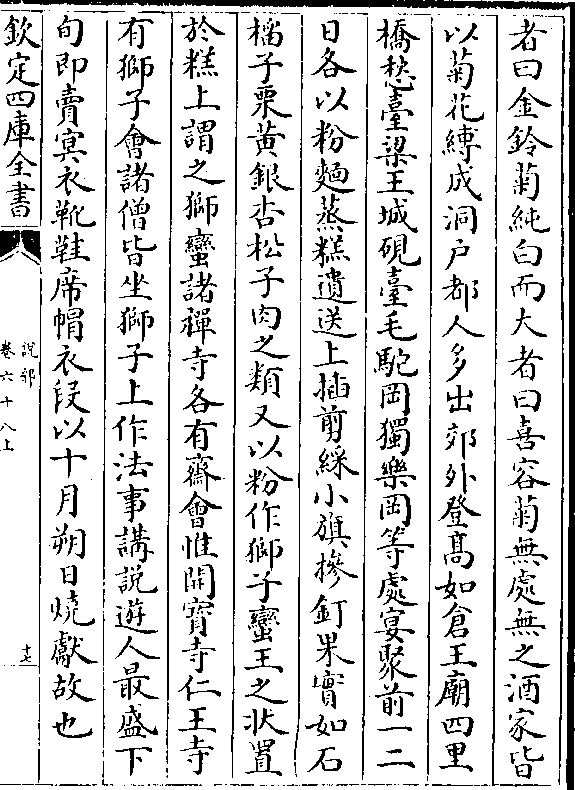 者曰金鈴菊純白而大者曰喜容菊無處無之酒家皆
以菊花縳成洞户都人多出郊外登髙如倉王廟四里
橋愁臺梁王城硯臺毛駞岡獨樂岡等處宴聚前一二
日各以粉麵蒸糕遺送上插剪綵小旗摻飣果實如石
榴子栗黄銀杏松子肉之類又以粉作獅子蠻王之狀置
於糕上謂之獅蠻諸禪寺各有齋會惟開寳寺仁王寺
有獅子會諸僧皆坐獅子上作法事講說遊人最盛下
旬即賣㝠衣靴鞋席帽衣段以十月朔日燒獻故也
欽定四庫全書
說郛
卷六十八上
十七